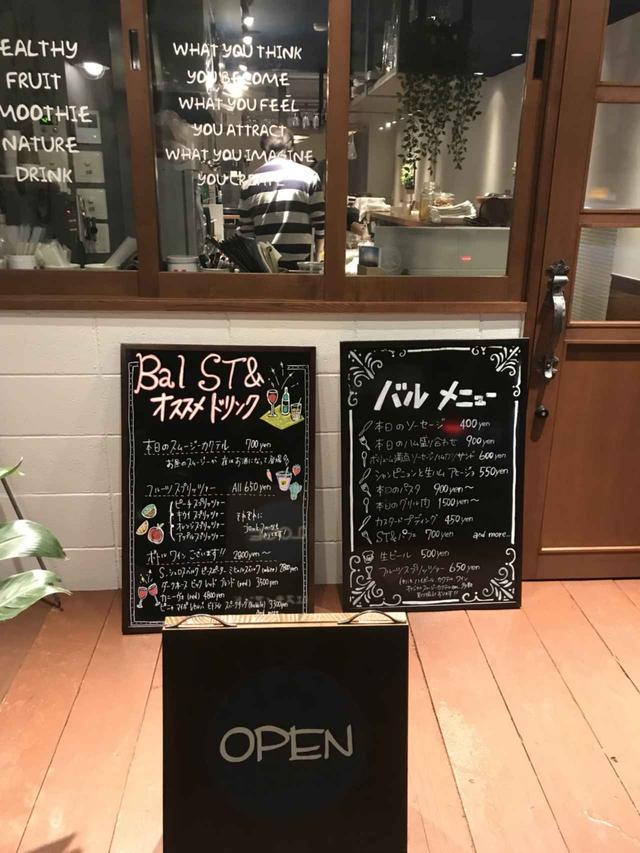 EALTHY
FRUIT
MOOTHIE
NATURE
DRINK
WHAT YOU THINK
YOU BECOME
WHAT YOU FEEL
YOU ATTRACT
WHAT YOU IMAGINE
YOU CREATE
Bal ST&
オススメドリンク
本日のスムージーカクテル 700yen
フルーツスプリッツァー All 650yen
ピーチスプリッツァー
キウイスプリッツァー
オレンジスプリッツァー
アップルスプリッツァー
それぞれに
ボトルワインございます!! 2800yen〜
バル メニュー
本日のソーセージ 400yen
本日のハム盛り合わせ 900yen
ボリューム満点ソーセージ 600yen
シャンピニョンと生ハムアヒージョ 550yen
本日のパスタ 900yen〜
本日のグリル肉 1500yen〜
カスタードプディング 450yen
ST&パフェ 700yen and more..
生ビール 500yen
フルーツスプリッツァー 650yen
OPEN